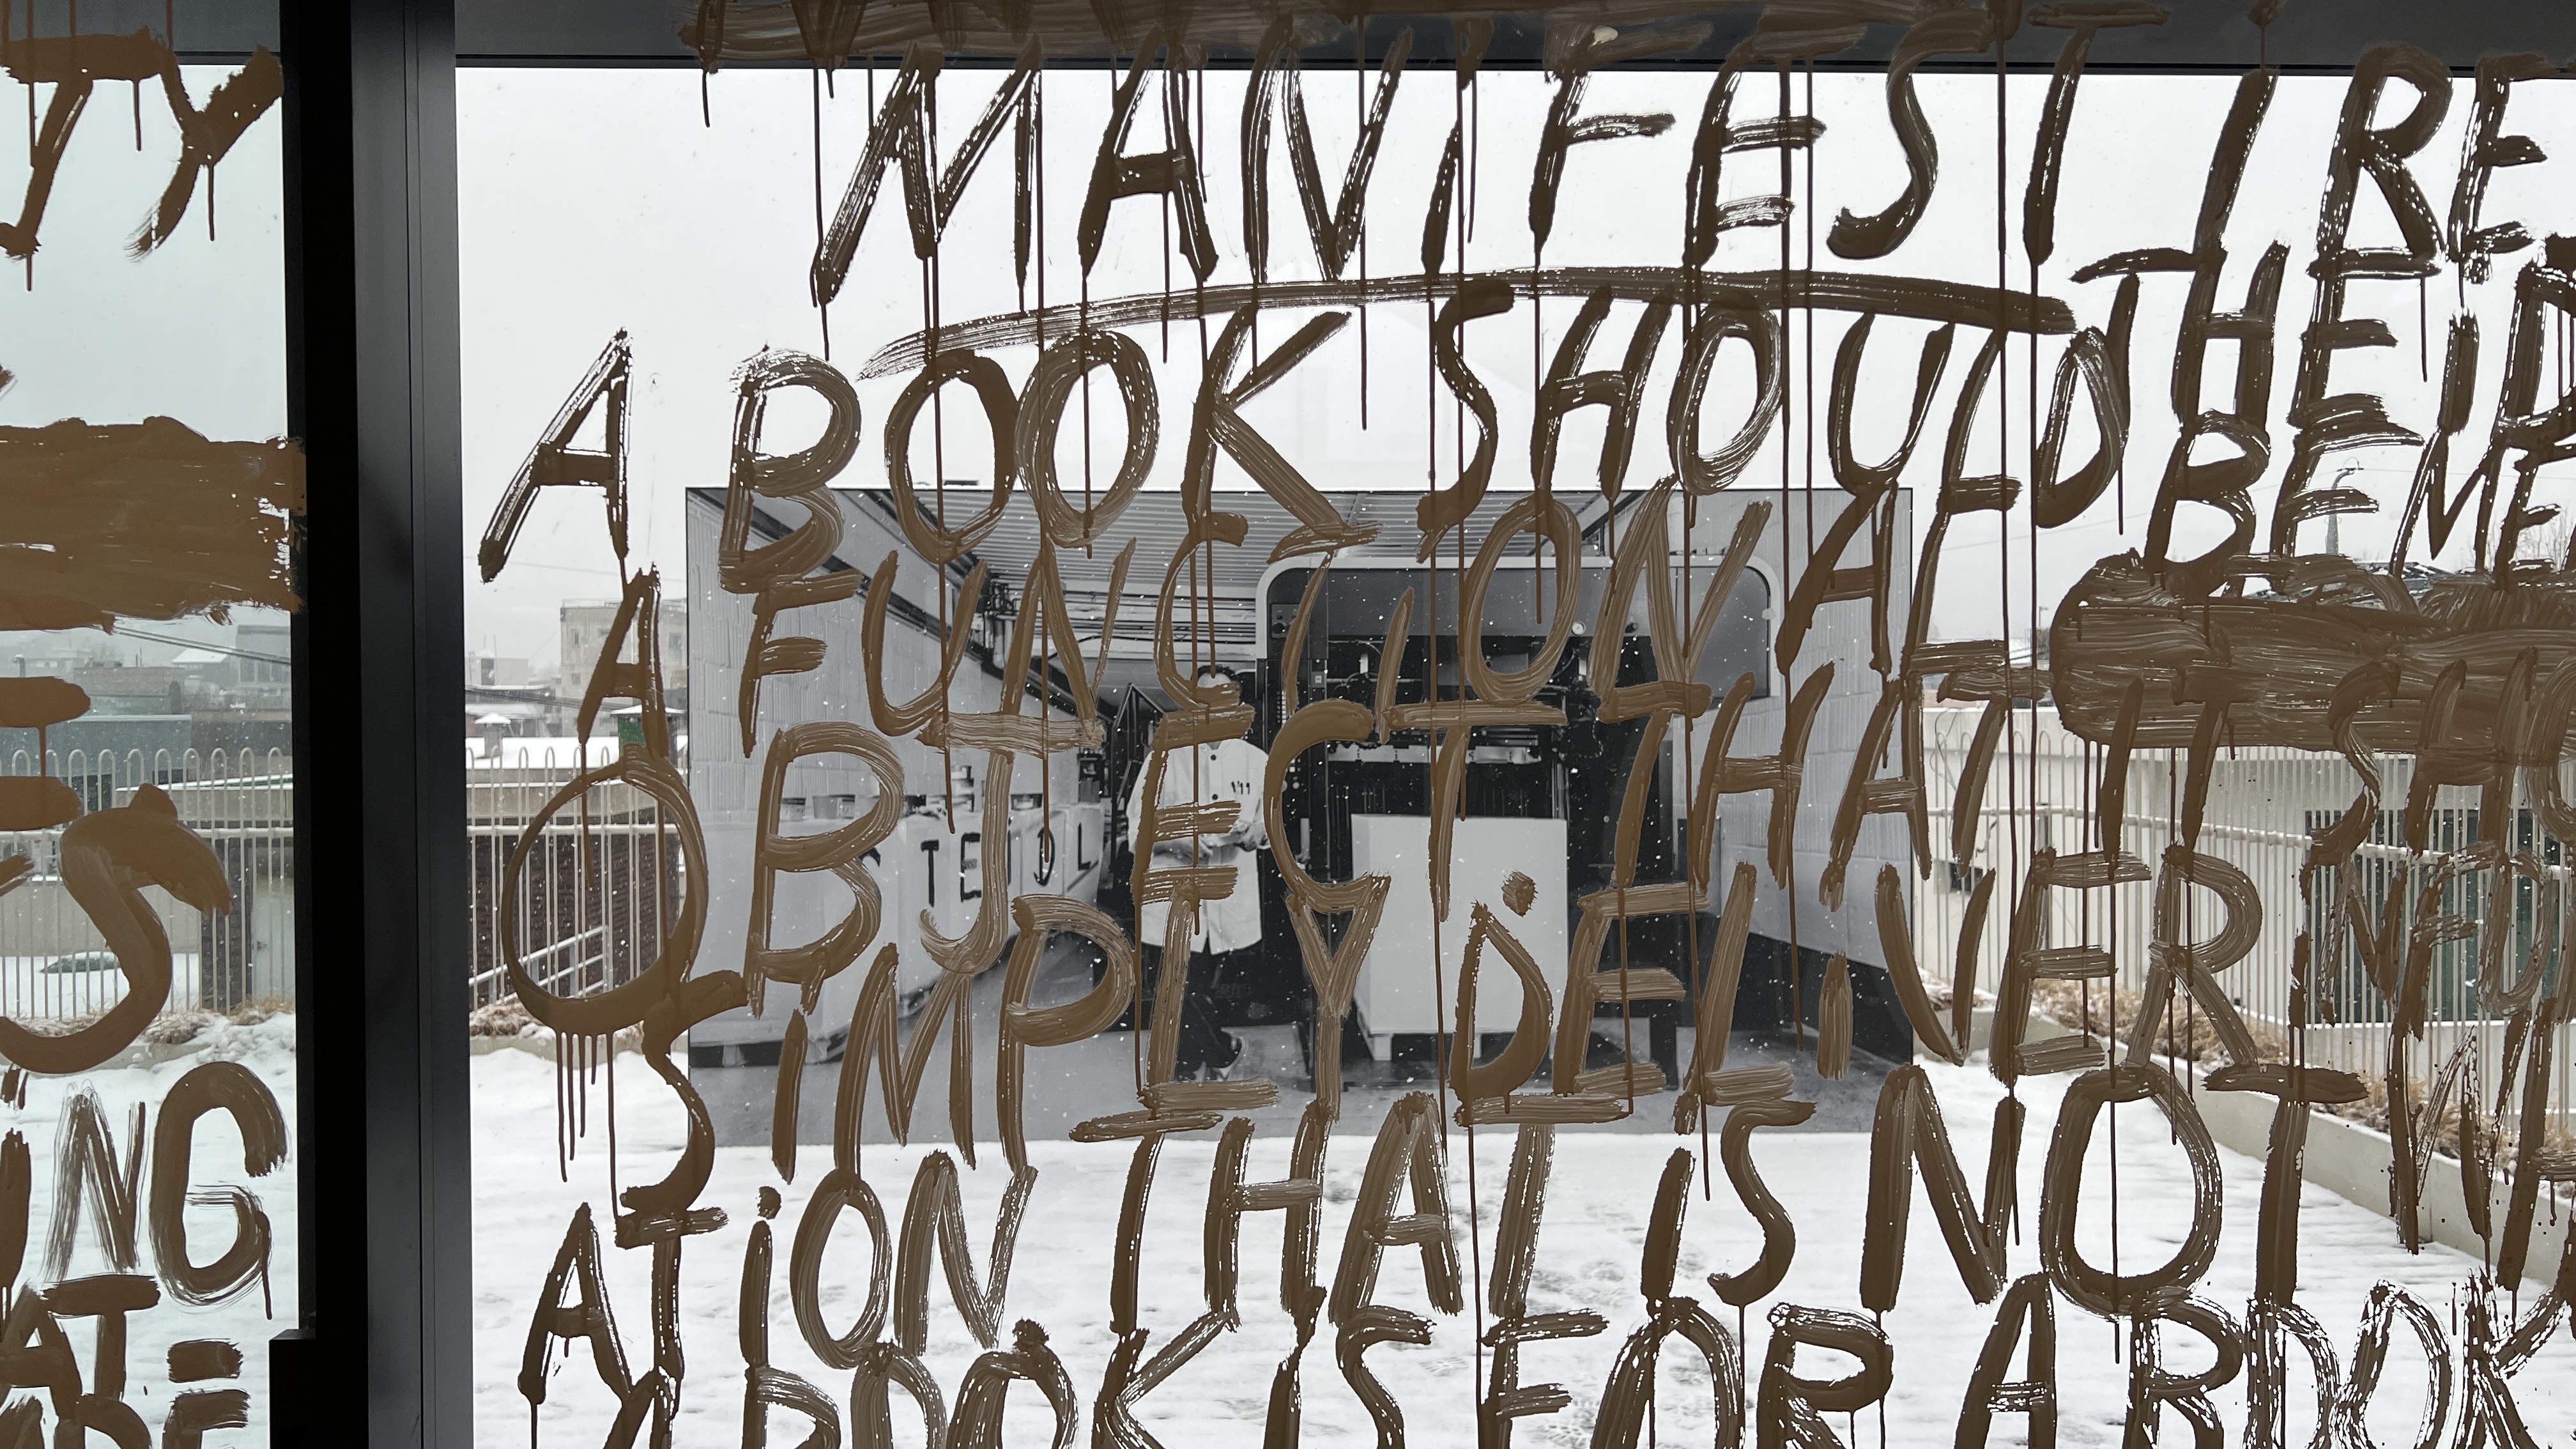 TY
S
ING
AT=
MANIFEST I RE
THEIR
A BOOK SHOULD BE ME
A FUNCTIONAL
OBJECT THAT IT SHO
SIMPLY DELIVER INFO
ATION THAT IS NOT
A BOOK IS FOR A BOOK
TEIDL